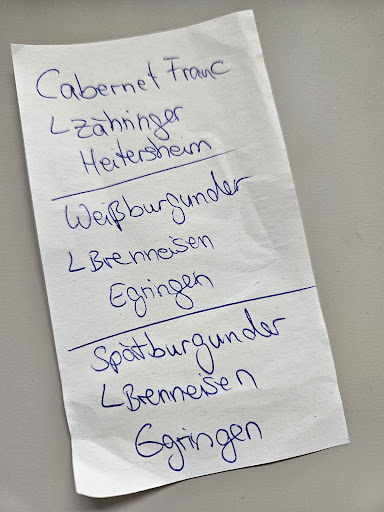 Cabernet Franc
└ Zähringer
Heitersheim
Weißburgunder
└ Brenneisen
Egringen
Spätburgunder
└ Brenneisen
Egringen